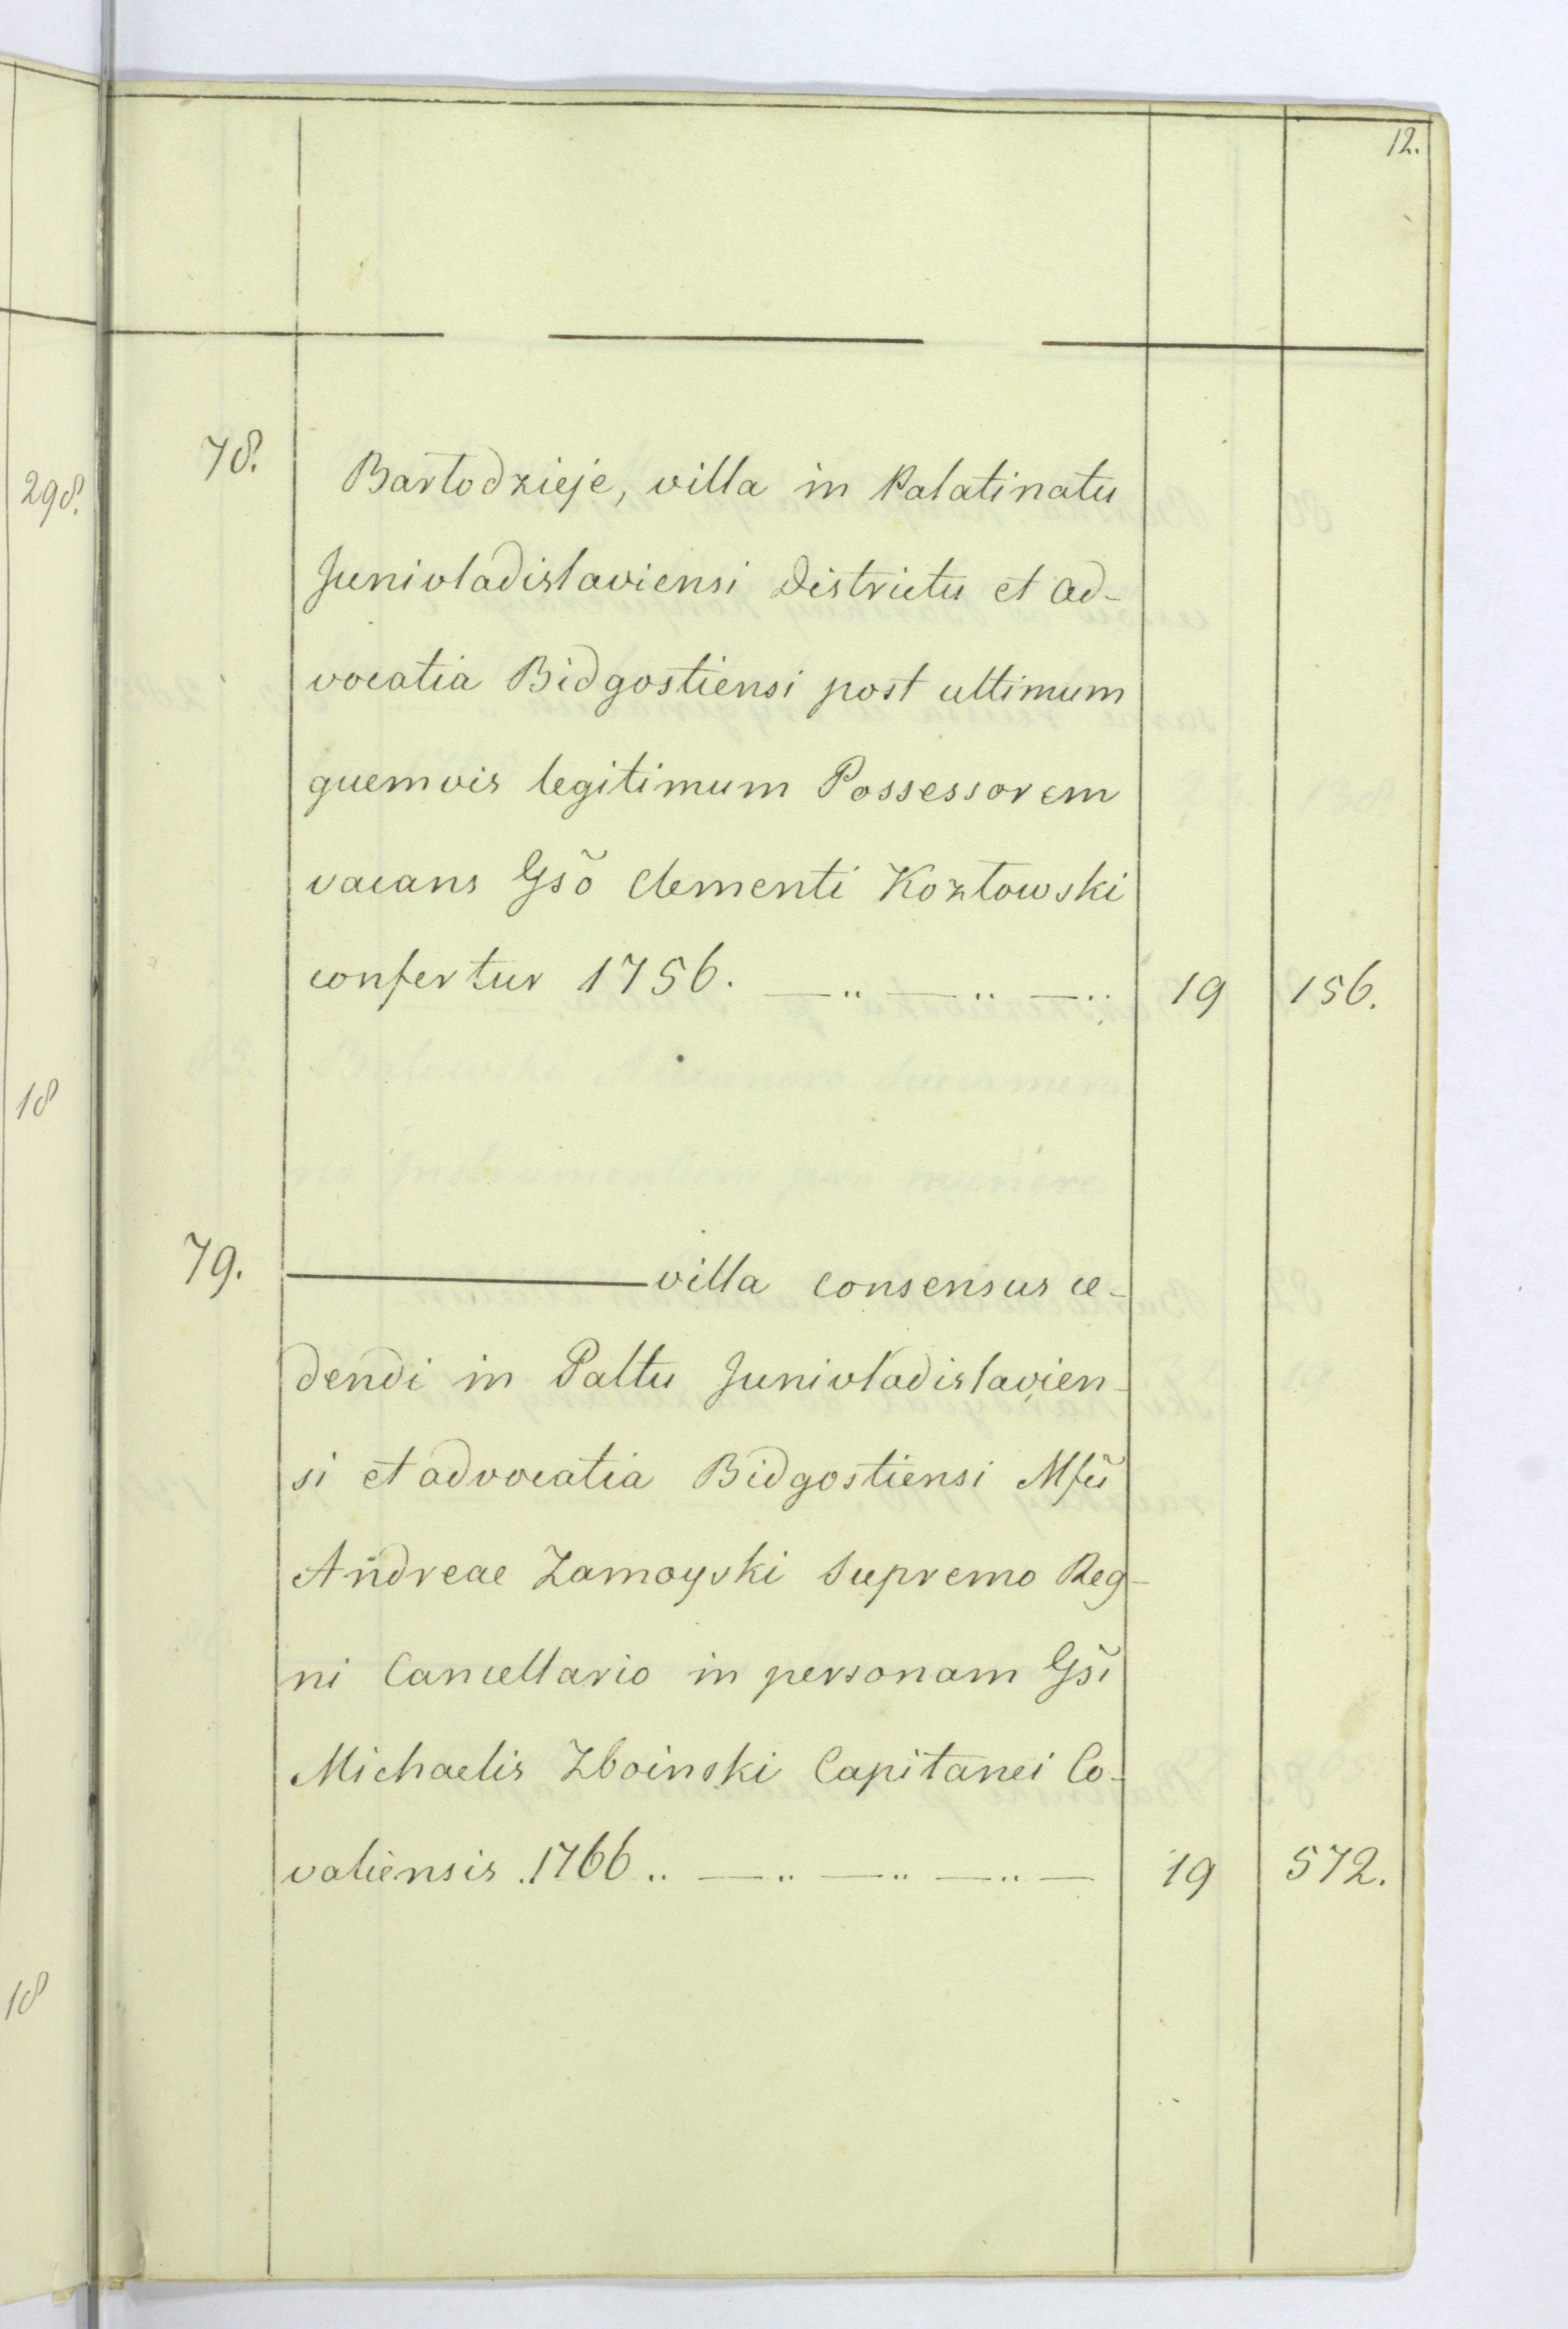 12.
298.
18
18
78. Bartodzieje, villa in Palatinatu
Junivladislaviensi Districtu et ad-
vocatia Bidgostiensi post ultimum
quemvis legitimum Possessorem
vacans Gsõ Clementi Kozłowski
confertur 1756. — .. — .. — .. 19 156.
79. ——— villa consensus ce-
dendi in Paltu Junivladislavien-
si et advocatia Bidgostiensi Mfũ
Andreae Zamoyski Supremo Reg-
ni Cancellario in personam Gsĩ
Michaelis Zboinski Capitanei Co-
valiensis .1766 .. — .. — .. — .. — 19 572.